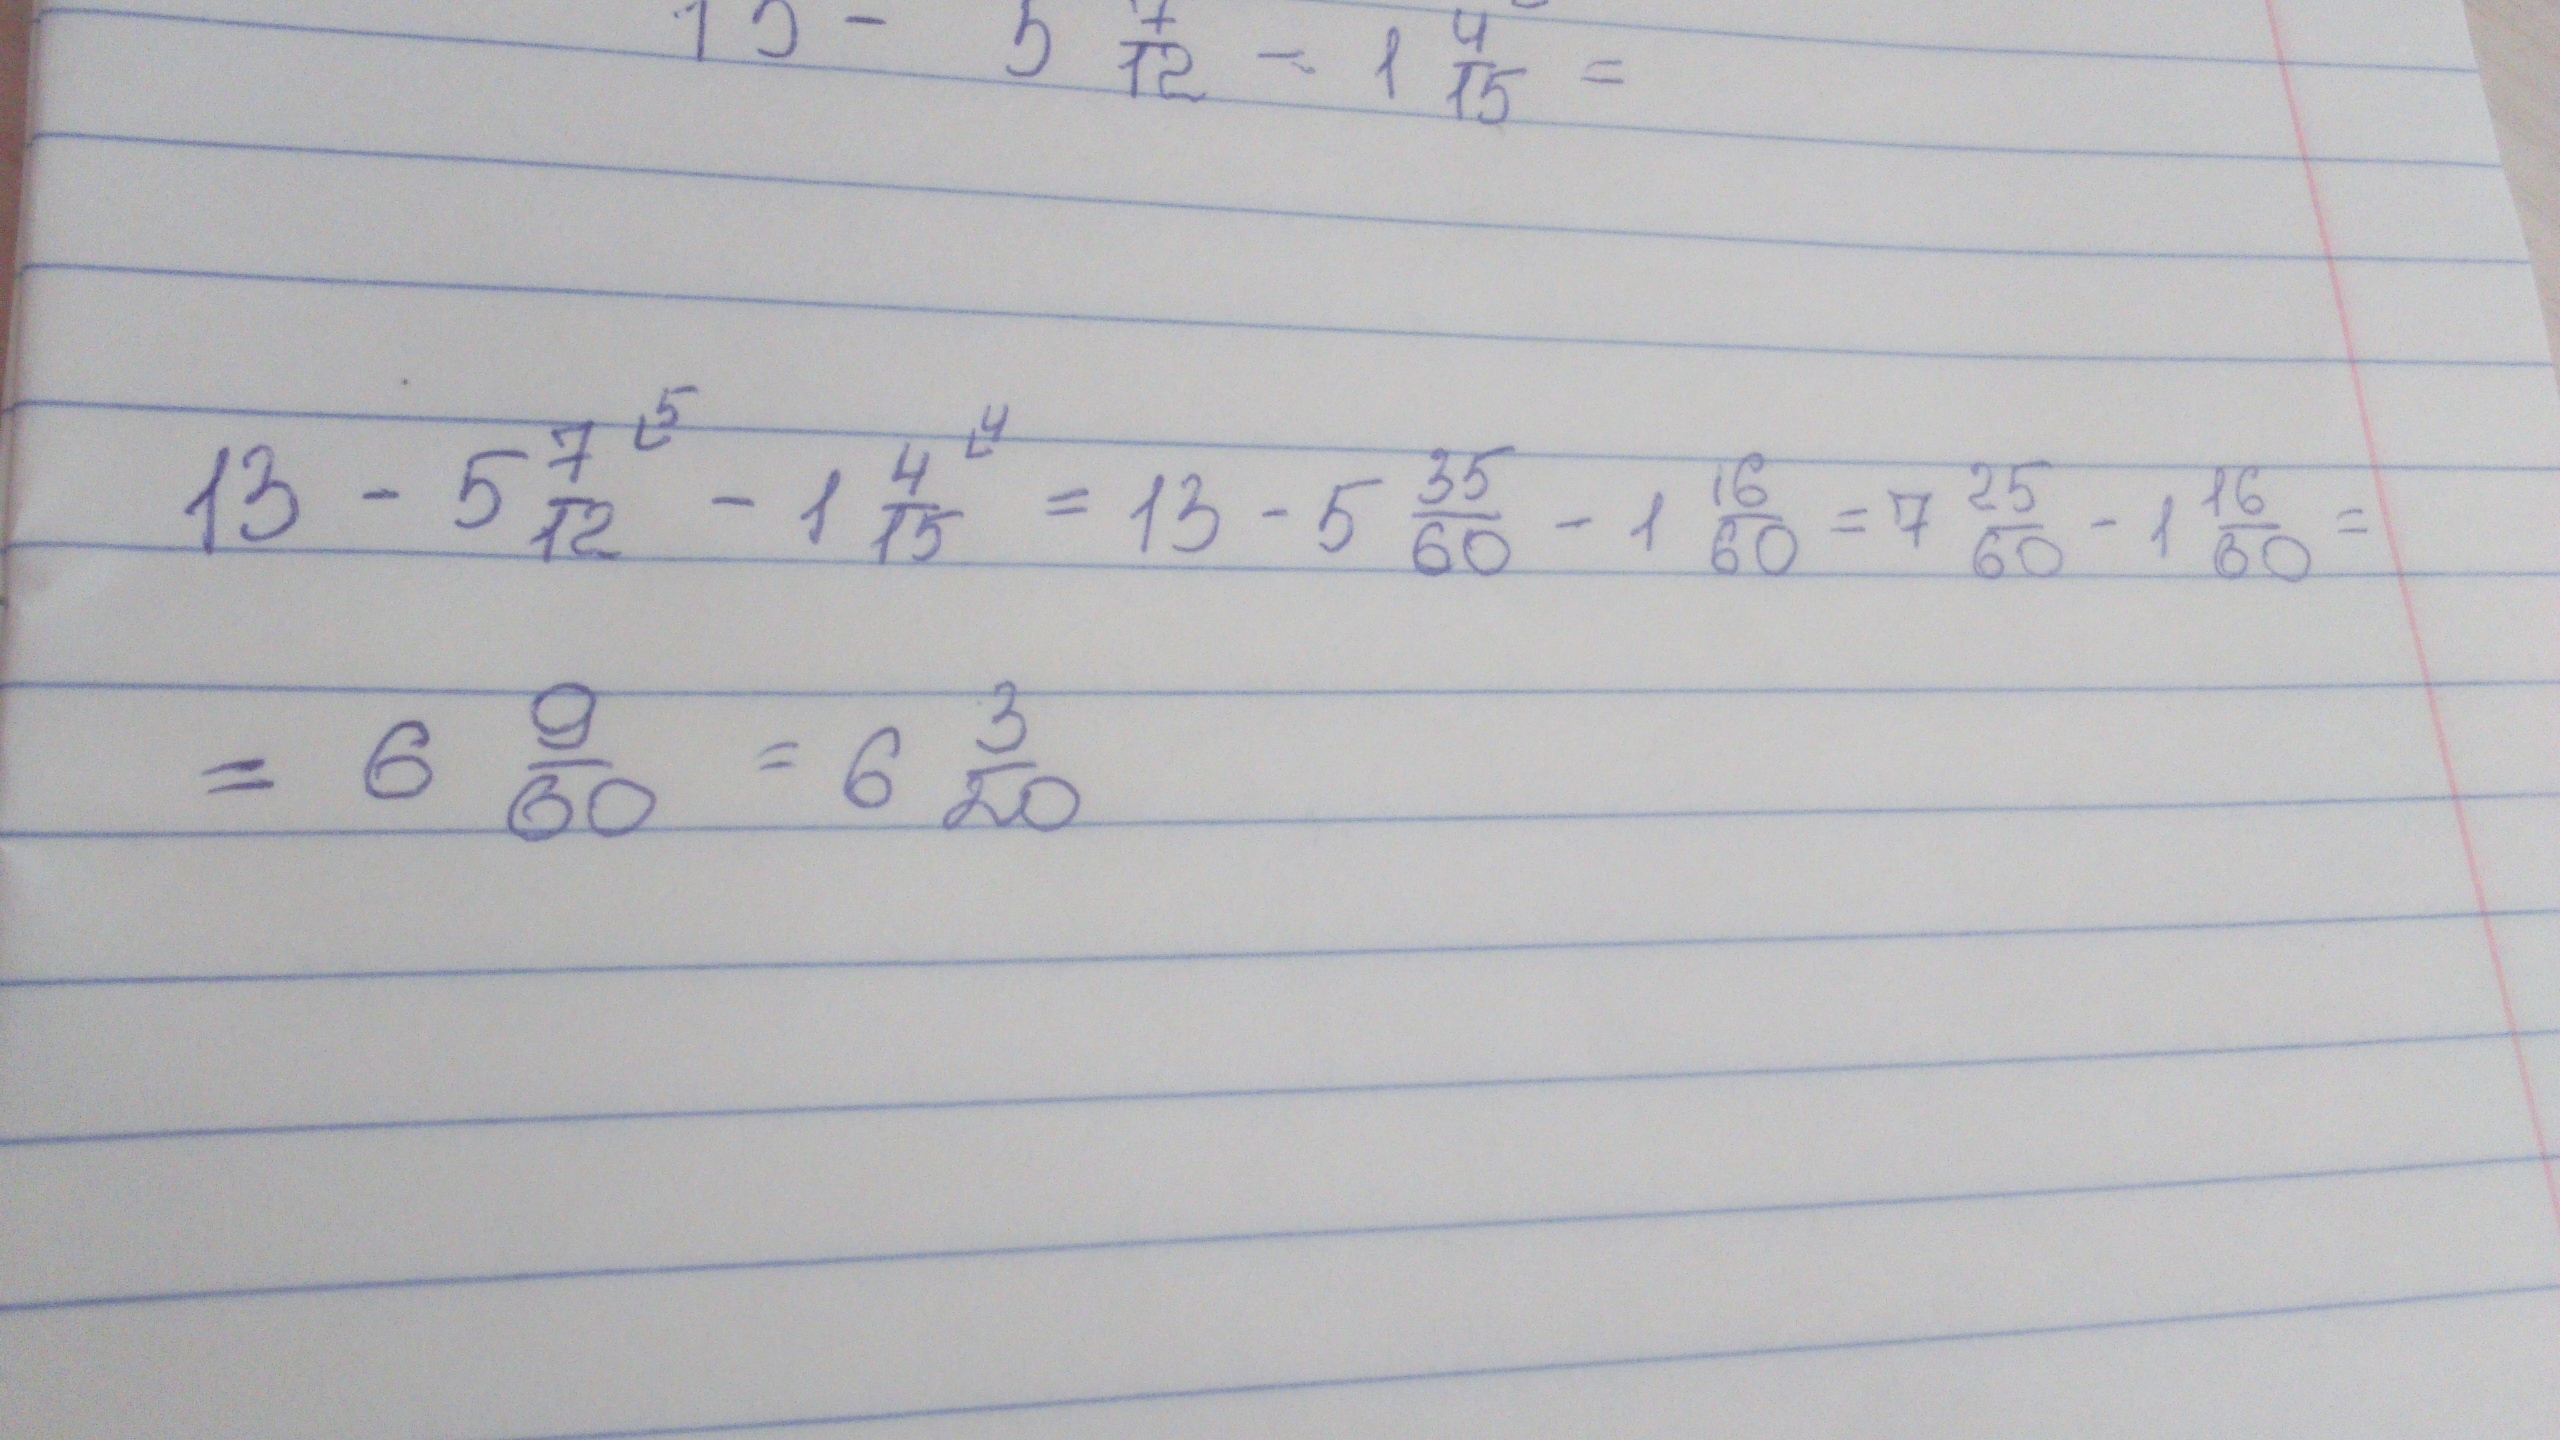 13 - 5 7/12 - 1 4/15 =
13 - 5 7/12 ⌞5 - 1 4/15 ⌞4 = 13 - 5 35/60 - 1 16/60 = 7 25/60 - 1 16/60 =
= 6 9/60 = 6 3/20